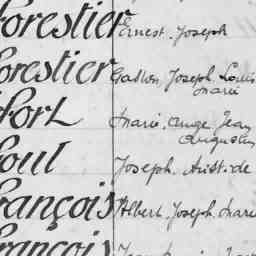 Forestier Ernest. Joseph
Forestier Gaston, Joseph, Louis
Marie
Fort Marie, Ange Jean
Augustin
Foul Joseph. Aristide
François Albert, Joseph, Marie
François